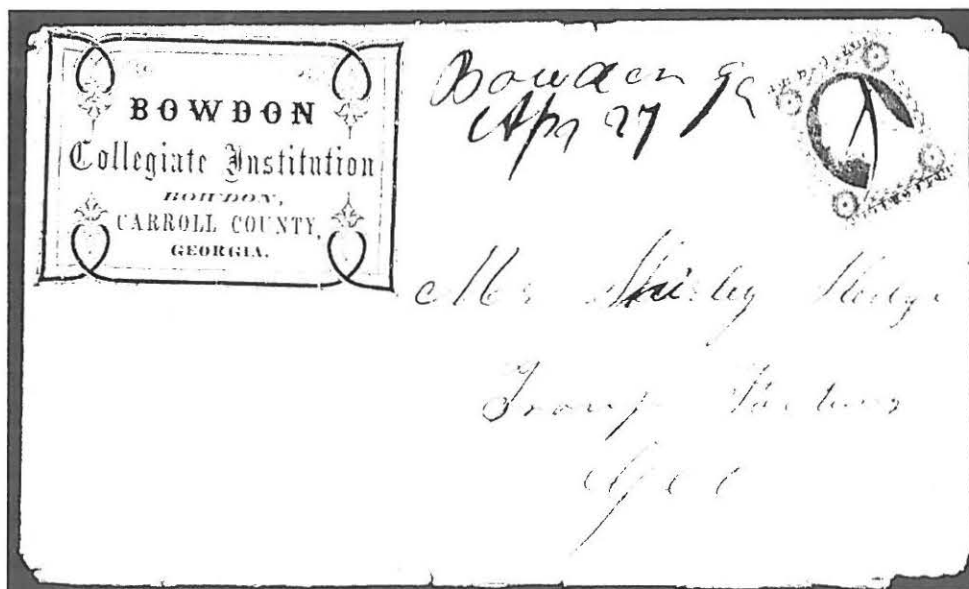 BOWDON
Collegiate Institution
BOWDON,
CARROLL COUNTY,
GEORGIA.
Bowdon Ga
Apr 27
Mr Shirley Sledge
Troup Factory
Geo